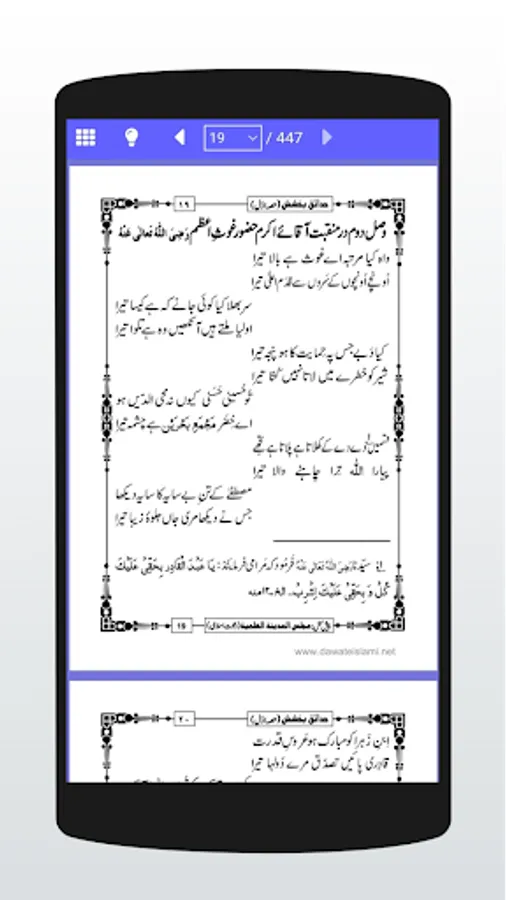 19 / 447
۱۹ حدائق بخشش (حصہ اوّل)
وصل دوم در منقبت آقائے اکرم حضور غوث اعظم رَضِیَ اللّٰہُ تَعَالٰی عَنْہُ
واہ کیا مرتبہ اے غوث ہے بالا تیرا
اُونچے اُونچوں کے سَروں سے قدَم اعلیٰ تیرا
سر بھلا کیا کوئی جانے کہ ہے کیسا تیرا
اولیا ملتے ہیں آنکھیں وہ ہے تلوا تیرا
کیا دَبے جس پہ حمایت کا ہو پنجہ تیرا
شیر کو خطرے میں لاتا نہیں کُتّا تیرا
تو حُسینی حَسَنی کیوں نہ محی الدّیں ہو
اے خضر مَجْمَعِ بَحْرَیْن ہے چشمہ تیرا
قسمیں دے دے کے کھلاتا ہے پلاتا ہے تجھے
پیارا اللّٰہ ترا چاہنے والا تیرا
مصطفٰے کے تنِ بے سایہ کا سایہ دیکھا
جس نے دیکھا مری جاں جلوۂ زیبا تیرا
سیّدنا رَضِیَ اللّٰہُ تَعَالٰی عَنْہُ فرمود کہ مرا می فرمایند: یَا عَبْدَ الْقَادِر بِحَقِّیْ عَلَیْکَ
کُلْ وَ بِحَقِّیْ عَلَیْکَ اِشْرِبْ۔ الخ ۱۲ منہ
19 مجلس المدینۃ العلمیۃ (دعوت اسلامی)
www.dawateislami.net
۲۰ حدائق بخشش (حصہ اوّل)
اِبن زَہرا کو مبارک ہو عَروسِ قدرت
قادِری پائیں تصدّق مرے دُولہا تیرا